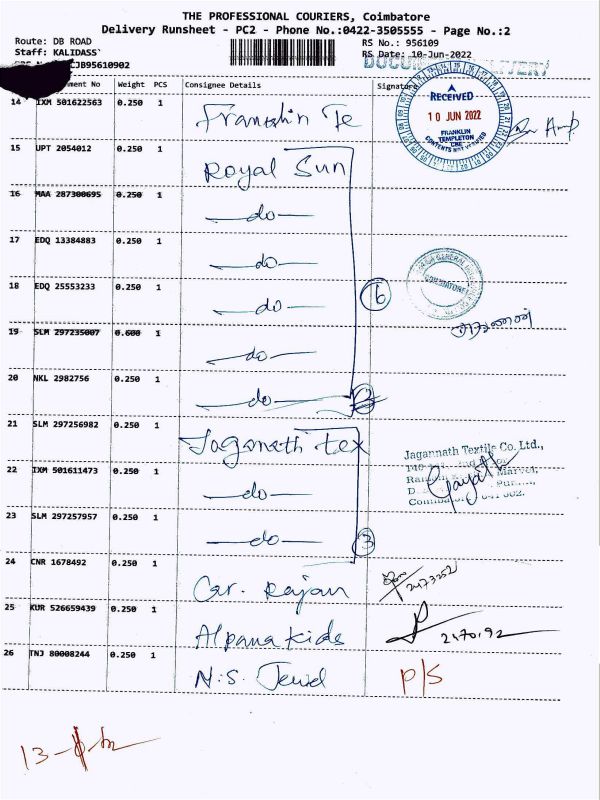 THE PROFESSIONAL COURIERS, Coimbatore
Delivery Runsheet - PC2 - Phone No.:0422-3505555 - Page No.:2
Route: DB ROAD
Staff: KALIDASS
RS No.: 956109
RS Date: 10-Jun-2022
CJB95610902
ment No Weight PCS Consignee Details Signature
14 IXM 501622563 0.250 1 Franklin Te
RECEIVED
10 JUN 2022
FRANKLIN
TEMPLETON
CONTENTS NOT VERIFIED
15 UPT 2054012 0.250 1 Royal Sun
16 MAA 287300695 0.250 1 do
17 EDQ 13384883 0.250 1 do
18 EDQ 25553233 0.250 1 do
6
COIMBATORE
19 SLM 297235007 0.600 1 do
20 NKL 2982756 0.250 1 do
21 SLM 297256982 0.250 1 Jaganath tex
Jagannath Textile Co. Ltd.,
22 IXM 501611473 0.250 1 do
23 SLM 297257957 0.250 1 do
3
24 CNR 1678492 0.250 1 Car. Rajan
25 KUR 526659439 0.250 1 Alpana kids
26 TNJ 80008244 0.250 1 N.S. Jewel
P/S